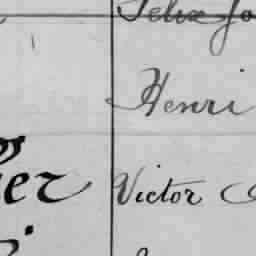 Felix Jo
Henri
er Victor